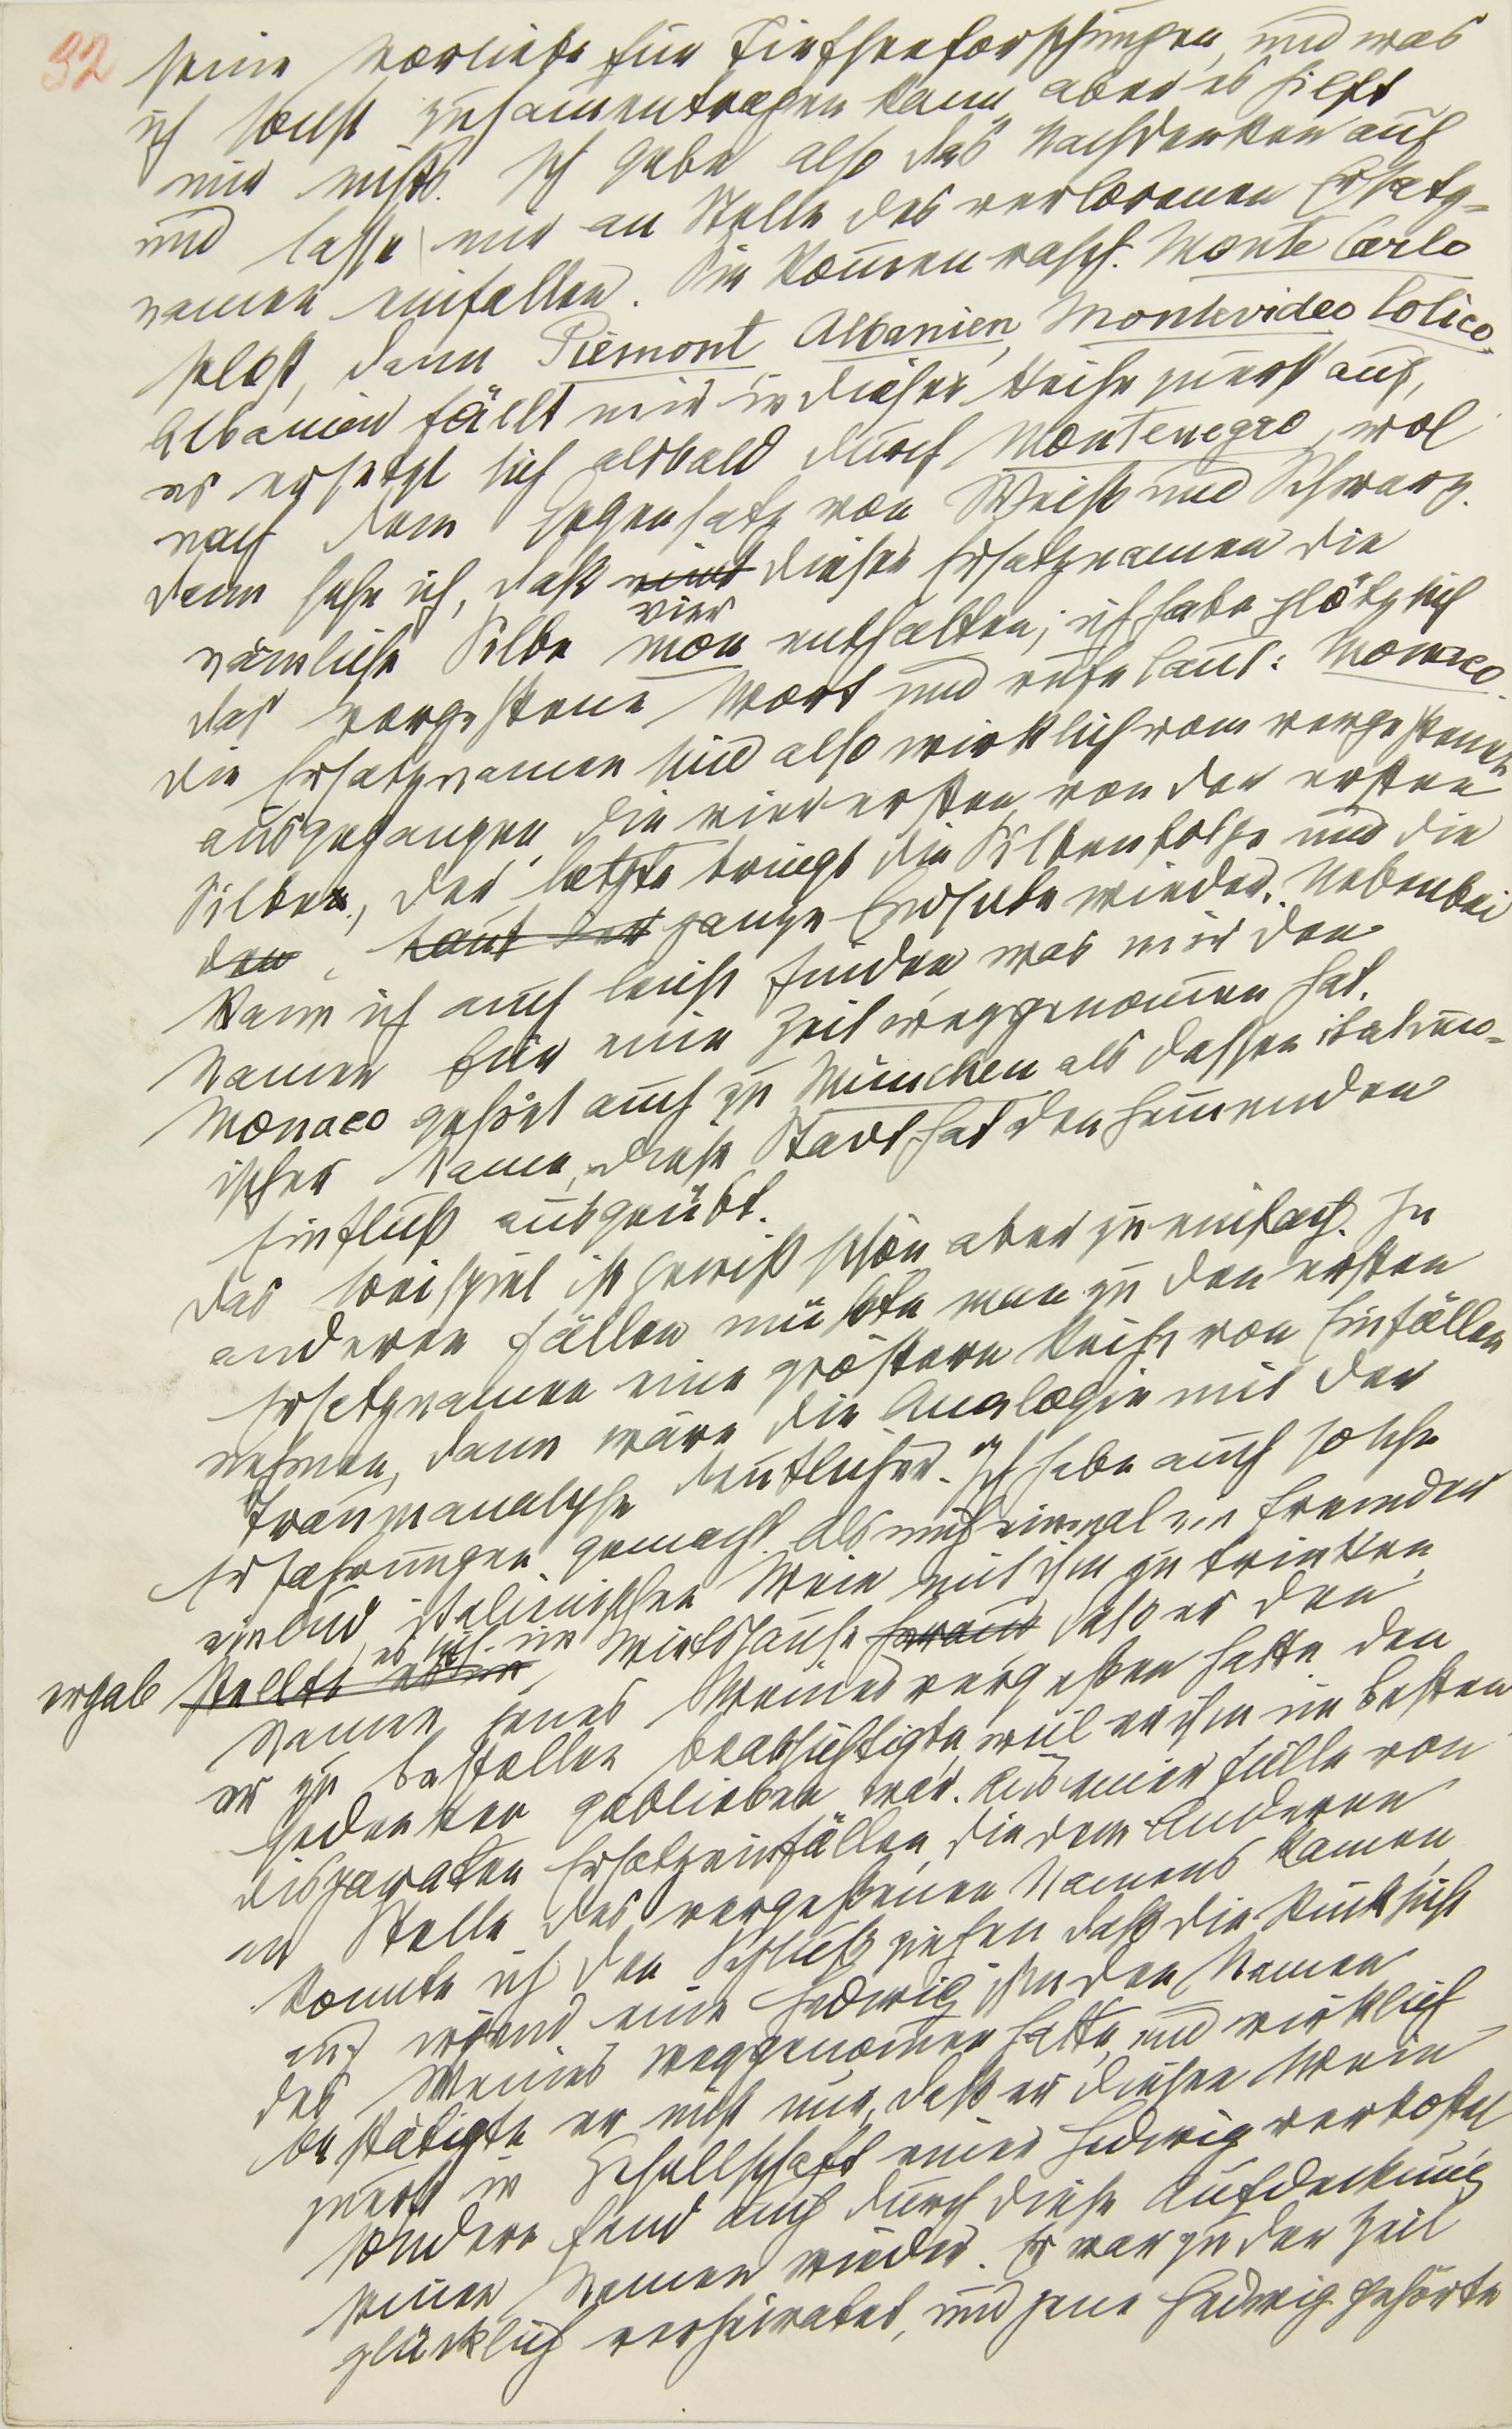 32
seine Vorliebe für Tiefseeforschungen, und was
ich sonst zusamentragen kann, aber es hilft
mir nichts. Ich gebe also das Nachdenken auf
und lasse mir an Stelle des verlorenen Ersatz-
namen einfallen. Sie komen rasch. Monte Carlo
selbst, dann Piemont, Albanien, Montevideo Colico.
Albanien fällt mir in dieser Reihe zuerst auf,
es ersetzt sich alsbald durch Montenegro, wol
nach dem Gegensatz von Weiß und Schwarz.
dann sehe ich, daß vier dieser Ersatznamen die
nämliche Silbe mon enthalten; ich habe plötzlich
das vergessene Wort und rufe laut: Monaco.
die Ersatznamen sind also wirklich vom vergessenen
ausgegangen, die vier ersten von der ersten
Silbe, der letzte bringt die Silbenfolge und die
ganze Endsilbe wieder. Nebenbei
kann ich auch leicht finden, was mir den
Namen für eine Zeit weggenomen hat.
Monaco gehört auch zu München als dessen italieni-
scher Name, diese Stadt hat den hemenden
Einfluß ausgeübt.
das Beispiel ist gewiß schön aber zu einfach. In
anderen Fällen müßte man zu den ersten
Ersatznamen eine größere Reihe von Einfällen
nehmen, dann wäre die Analogie mit der
Traumanalyse deutlicher. Ich habe auch solche
Erfahrungen gemacht. Als mich einmal ein Fremder
einlud, italienischen Wein mit ihm zu trinken,
ergab es sich im Wirtshause daß er den
Namen jenes Weines vergeßen hatte, den
er zu bestellen beabsichtigte, weil er ihm im besten
Gedenken geblieben war. Aus einer Fülle von
disparaten Ersatzeinfällen, die dem Anderen
an Stelle des vergeßenen Namens kamen,
konnte ich den Schluß ziehen, daß die Rücksicht
auf irgend eine Hedwig ihm den Namen
des Weines weggenomen hatte, und wirklich
bestätigte er nicht nur, daß er diesen Wein
zuerst in Gesellschaft einer Hedwig verkostet
sondern fand auch durch diese Aufdeckung
seinen Namen wieder. Er war zu der Zeit
glücklich verheiratet, und jene Hedwig gehörte